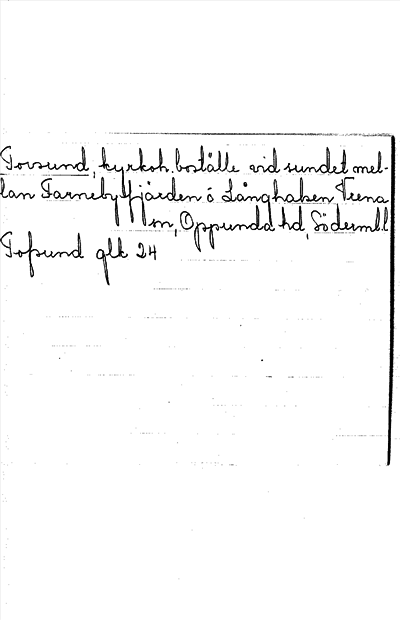 Torsund, kyrkoh. boställe vid sundet mel-
lan Farnebyfjärden o Långhalsen Vrena
sn, Oppunda hd, Söderml.l
Tosund glk 24